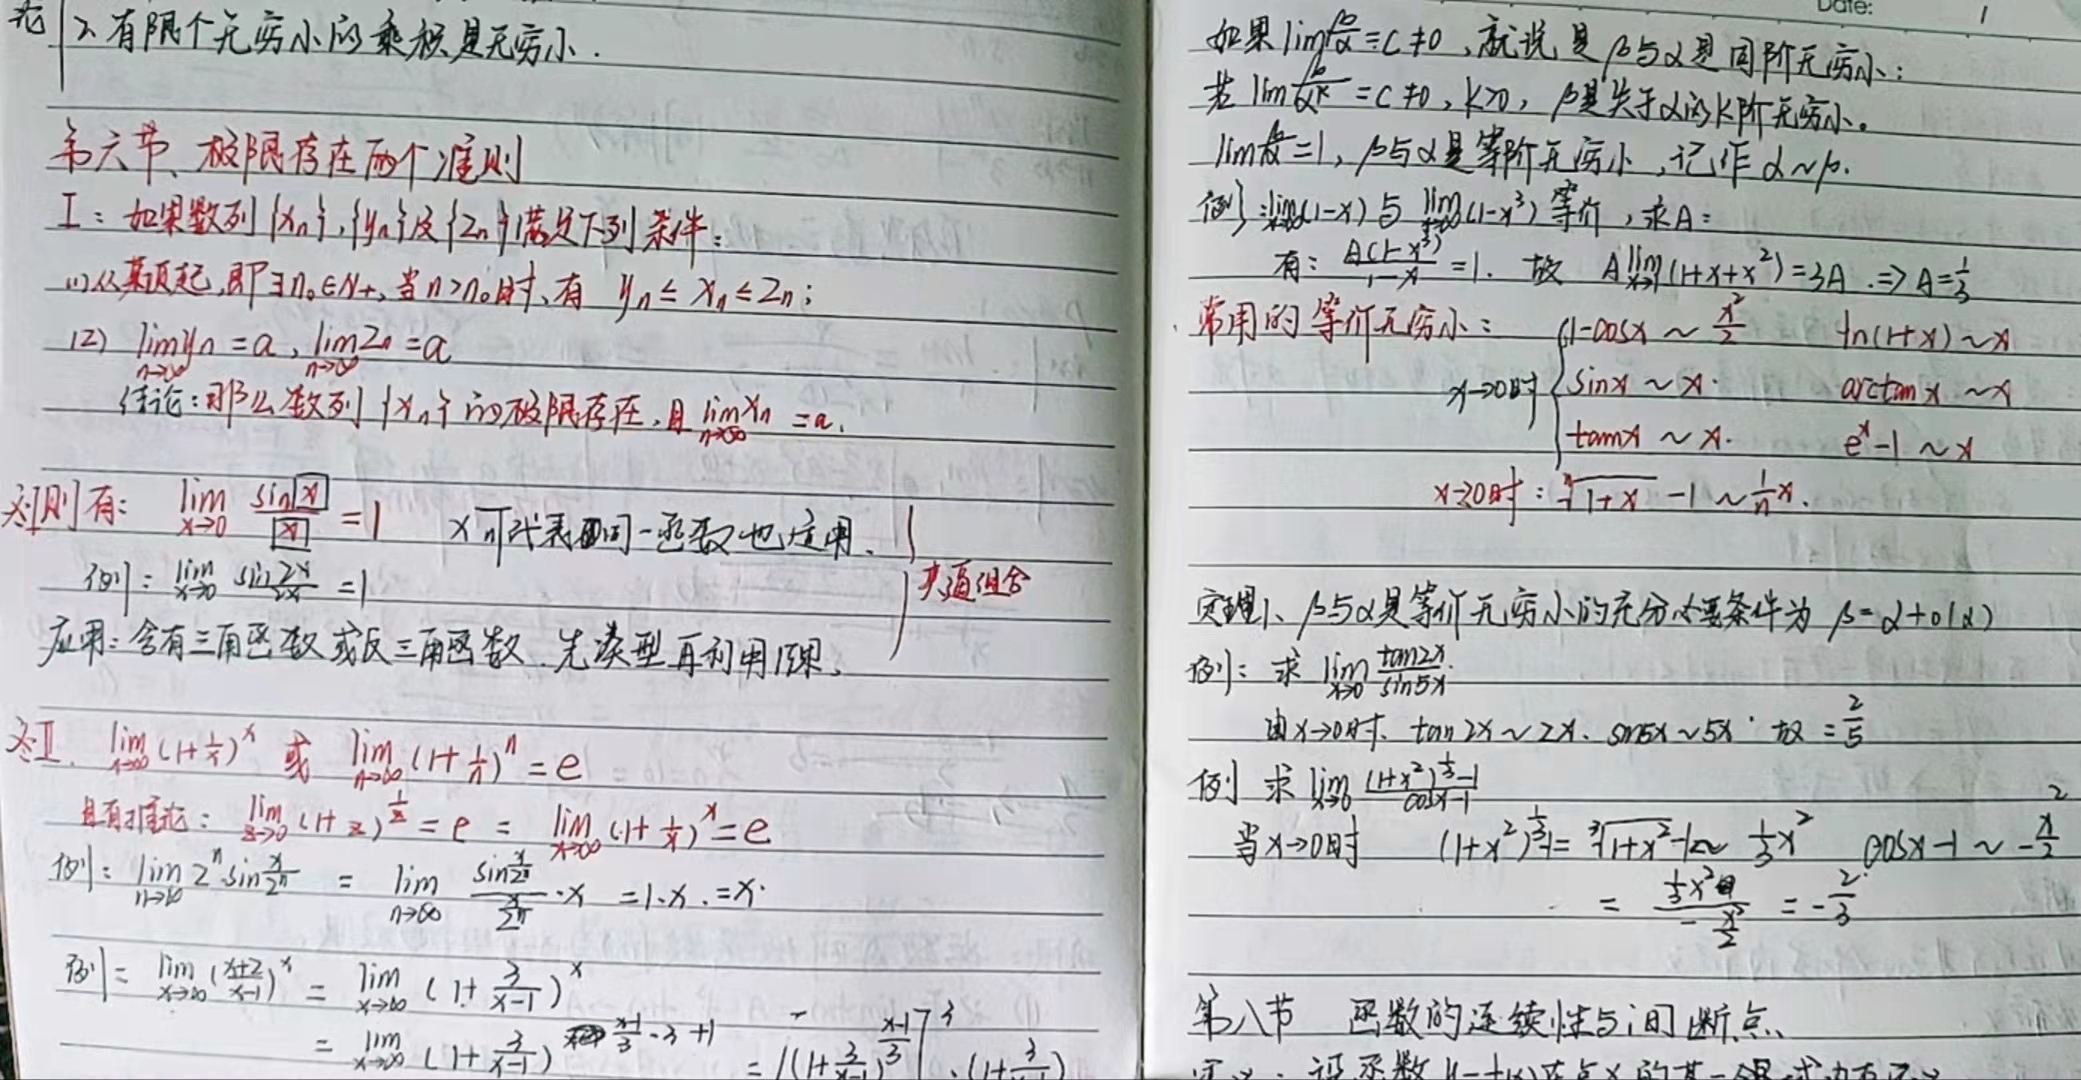 2. 有限个无穷小的乘积是无穷小.
第六节、极限存在两个准则
I：如果数列{xₙ},{yₙ}及{zₙ}满足下列条件：
(1)从某项起,即∃n₀∈N₊,当n>n₀时,有 yₙ≤xₙ≤zₙ;
(2) lim_{n→∞} yₙ=a, lim_{n→∞} zₙ=a
结论:那么数列{xₙ}的极限存在,且 lim_{n→∞} xₙ=a.
则有: lim_{x→0} sin x / x = 1 x可代表同一函数也适用.
例: lim_{x→0} sin2x / 2x = 1
应用:含有三角函数或反三角函数,先凑型再利用
II. lim_{x→∞} (1+1/x)^x 或 lim_{n→∞} (1+1/n)^n = e
且有推论: lim_{z→0} (1+z)^{1/z} = e = lim_{x→∞} (1+1/x)^x = e
例: lim_{n→∞} 2^n·sin x/2^n = lim_{n→∞} (sin x/2^n)/(x/2^n)·x = 1·x. = x.
例= lim_{x→∞} ((x+2)/(x-1))^x = lim_{x→∞} (1+3/(x-1))^x
= lim_{x→∞} (1+3/(x-1))^{(x-1)/3·3+1} = [(1+3/(x-1))^{(x-1)/3}]^3·(1+3/(x-1))
Date: 1
如果lim β/α=C≠0,就说是β与α是同阶无穷小;
若 lim β/α^k=C≠0, k>0, β是关于α的k阶无穷小。
lim β/α=1, β与α是等阶无穷小,记作 α~β.
例: (1-x)与 (1-x³)等价,求A:
有: A(1-x³)/(1-x)=1. 故 A lim_{x→1}(1+x+x²)=3A.⇒A=1/3
常用的等价无穷小: 1-cosx ~ x²/2 ln(1+x)~x
x→0时 sinx ~ x. arctanx ~x
tanx ~ x. e^x-1 ~ x
x→0时: ⁿ√(1+x) -1 ~ 1/n x.
定理1、β与α是等价无穷小的充分必要条件为 β=α+o(α)
例: 求 lim_{x→0} tan2x/sin5x.
由x→0时. tan2x~2x. sin5x~5x. 故=2/5
例 求 lim_{x→0} ((1+x²)^{1/3}-1)/(cosx-1)
当x→0时 (1+x²)^{1/3}-1= ³√(1+x²)-1~ 1/3 x² cosx-1~ -x²/2
= (1/3 x²)/(-x²/2) = -2/3
第八节 函数的连续性与间断点、